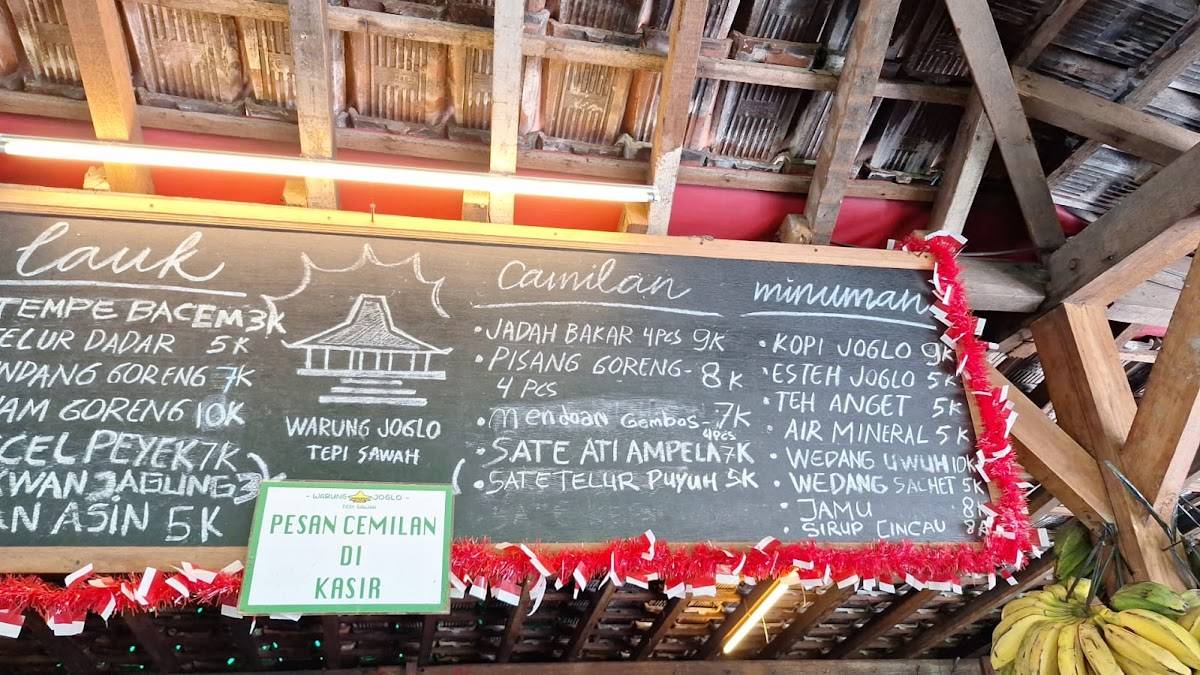 lauk
TEMPE BACEM 3K
ELUR DADAR 5K
NDANG GORENG 7K
AM GORENG 10K
CEL PEYEK 7K
KWAN JAGUNG 3
AN ASIN 5K
WARUNG JOGLO
TEPI SAWAH
- WARUNG JOGLO -
TEPI SAWAH
PESAN CEMILAN
DI
KASIR
Camilan
• JADAH BAKAR 4PCS 9K
• PISANG GORENG - 8K
4 PCS
• Mendoan Gembos - 7K
4PCS
• SATE ATI AMPELA 7K
• SATE TELUR PUYUH 5K
minuman
• KOPI JOGLO 9K
• ESTEH JOGLO 5K
• TEH ANGET 5K
• AIR MINERAL 5K
• WEDANG UWUH 10K
• WEDANG SACHET 5K
• JAMU 8K
• SIRUP CINCAU